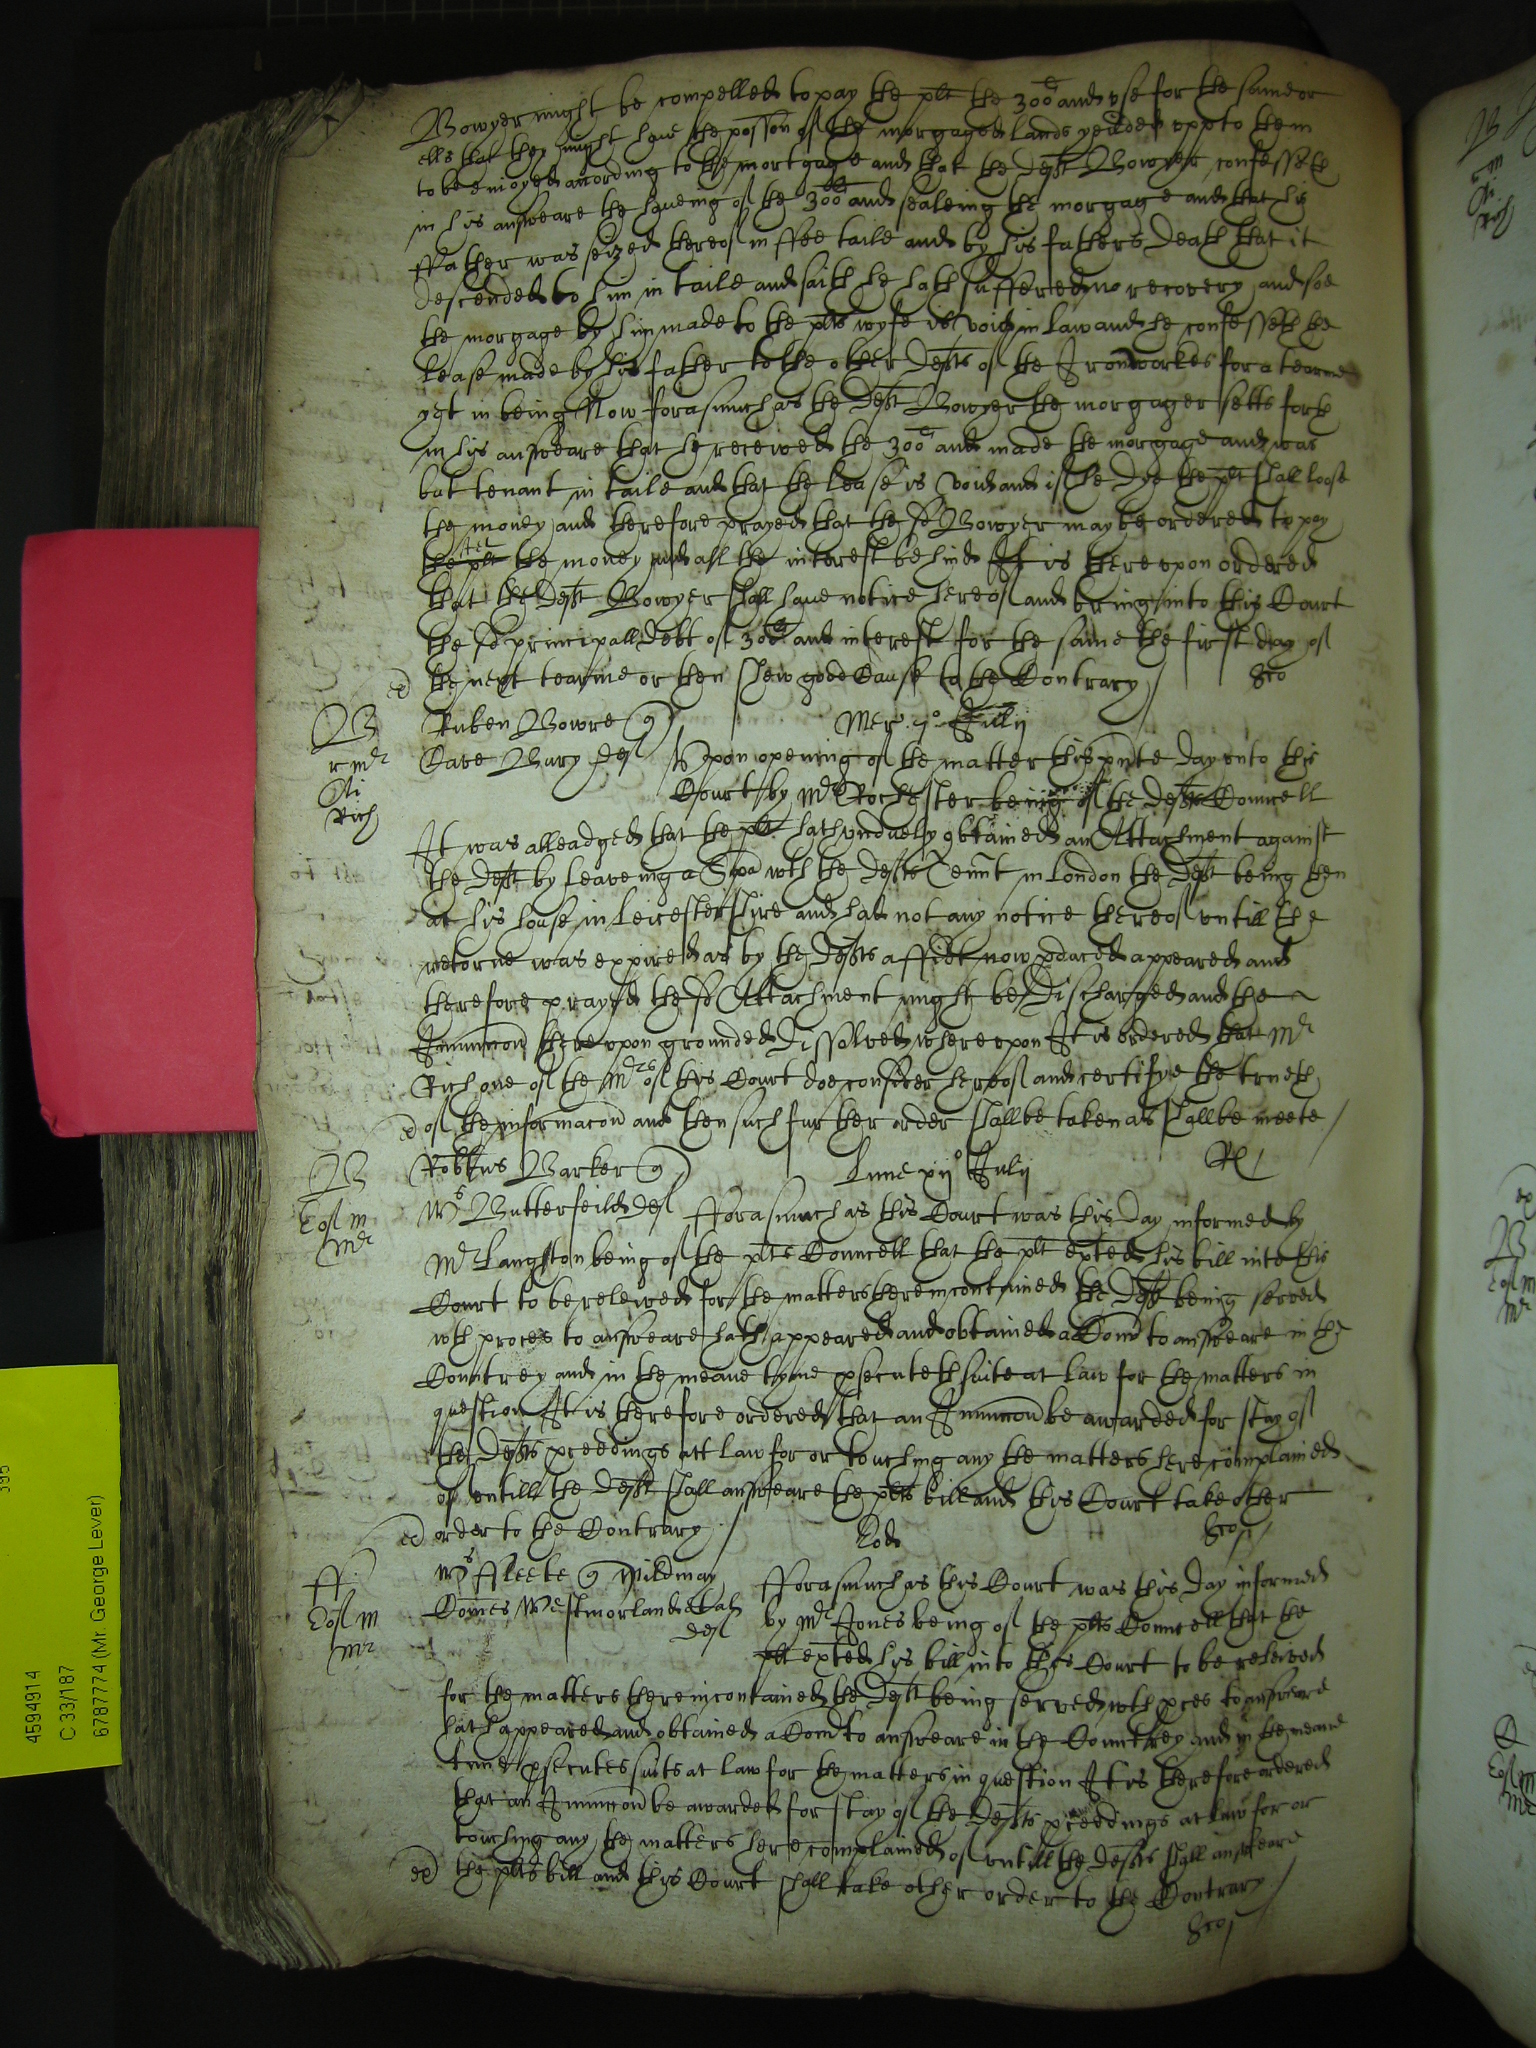 Bowyer might be compelled to pay the plt the 300li and vse for the same or
ells that they might haue the possion of the morgaged lands yeilded vpp to them
to be enioyed according to the mortgage and that the deft Bowyer confesseth
in his answeare the haueing of the 300li and sealeing the morgage and that his
ffather was seized thereof in ffee taile and by his fathers death that it
descended to him in taile and saith he hath suffered no recovery and soe
the morgage by him made to the plts wyfe is void in law and he confesseth the
lease made by his father to the other defts of the Ironworkes for a tearme
yet in being Now forasmuch as the deft Bowyer the morgager setts forth
in his answeare that he receiued the 300li and made the morgage and was
but tenant in taile and that the lease is void and if he dye the plt shall loose
the money and therefore prayed that the sd Bowyer may be ordered to pay
the plt the money and all the interest behind It is therevpon ordered
that the deft Bowyer shall haue notice hereof and bring into this Court
the sd principall debt of 300li and interest for the same the first day of
the next tearme or then shew good Cause to the Contrary
Ruben Bowre q Mer. 7o Julij
Dave Bury def Vpon opening of the matter this pnte day vnto this
Court by Mr Rochester being of the defts Councell
It was alleadged that the plt hath vnduely obtained an Attachment against
the deft by leaveing a Spa wth the defts Tennt in London the deft being then
at his house in Leicestershire and had not any notice thereof vntill the
retorne was expired as by the defts affidt now pduced appeared and
therefore prayed the sd Attachment might be discharged and the
Iniunccon therevpon grounded dissolved wherevpon It is ordered that Mr
Rich one of the Mrs of this Court doe consider hereof and certifye the trueth
of the informacon and then such further order shall be taken as shall be meete
B
r mr
Rich
Robtus Barker q Lune xijo Julij
Ws Butterfeild def Fforasmuch as this Court was this day informed by
Mr Langston being of the plts Councell that the plt exted his bill into this
Court to be releived for the matters therein contained the deft being served
wth proces to answeare hath appeared and obtained a Comn to answeare in the
Countrey and in the meane tyme psecuteth suite at law for the matters in
question It is therefore ordered that an Iniunccon be awarded for stay of
the defts pceedings att law for or touching any the matters here complained
of vntill the deft shall answeare the plts bill and this Court take other
order to the Contrary
B
mr
Eod
Ws ffleete q Mildmay Fforasmuch as this Court was this day informed
Comes Westmorland et al by Mr Jones being of the plts Councell that the
def plt exted his bill into this Court to be releived
for the matters therein contained the deft being served wth pces to answeare
hath appeared and obtained a Comn to answeare in the Countrey and in the meane
time psecutes suits at law for the matters in question It is therefore ordered
that an Iniunccon be awarded for stay of the defts pceedings at law for or
touching any the matters here complained of vntill the defts shall answeare
the plts bill and this Court shall take other order to the Contrary
ff
mr
4594914
C 33/187
6787774 (Mr. George Lever)
395